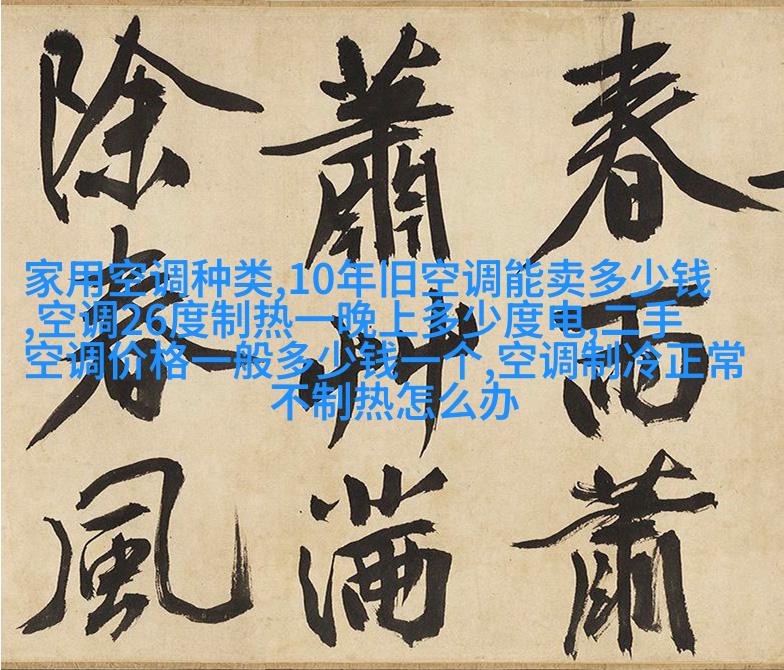 春雨蕭
蕭艸滿
除春風
家用空调种类,10年旧空调能卖多少钱
,空调26度制热一晚上多少度电,二手
空调价格一般多少钱一个,空调制冷正常
不制热怎么办